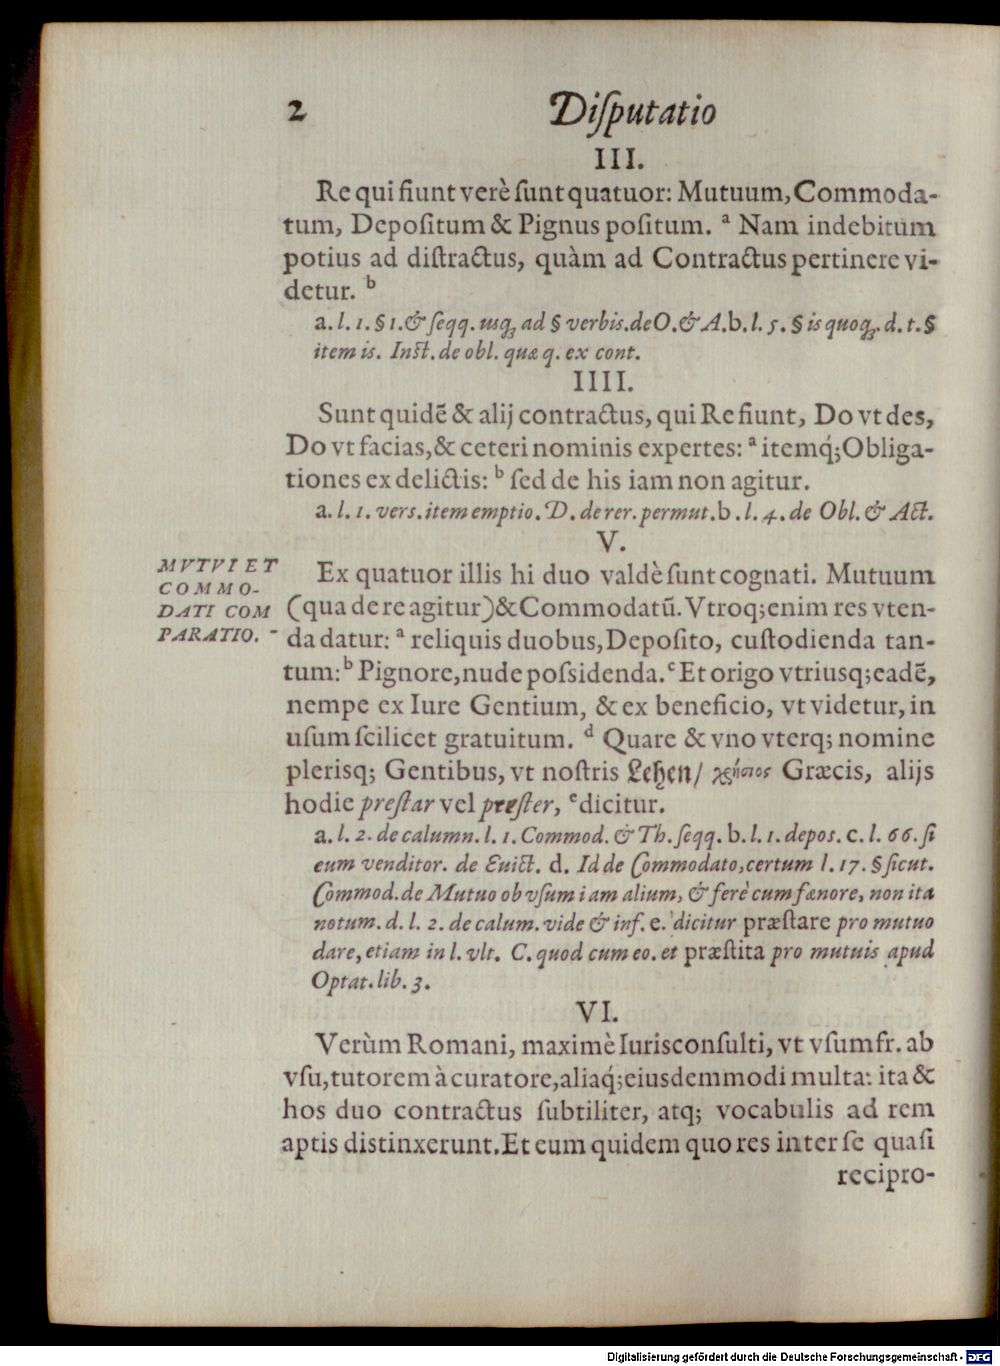 2 Diſputatio
III.
Re qui fiunt verè ſunt quatuor: Mutuum, Commoda-
tum, Depoſitum & Pignus poſitum. a Nam indebitum
potius ad diſtractus, quàm ad Contractus pertinere vi-
detur. b
a. l. 1. § 1. & ſeqq. uſqꝫ ad § verbis. de O. & A. b. l. 5. § is quoqꝫ. d. t. §
item is. Inſt. de obl. quæ q. ex cont.
IIII.
Sunt quidē & alij contractus, qui Re fiunt, Do vt des,
Do vt facias, & ceteri nominis expertes: a itemq́; Obliga-
tiones ex delictis: b ſed de his iam non agitur.
a. l. 1. verſ. item emptio. D. de rer. permut. b. l. 4. de Obl. & Act.
V.
MVTVI ET
COMMO-
DATI COM
PARATIO. -
Ex quatuor illis hi duo valdè ſunt cognati. Mutuum
(qua de re agitur) & Commodatū. Vtroq; enim res vten-
da datur: a reliquis duobus, Depoſito, cuſtodienda tan-
tum: b Pignore, nude poſsidenda. c Et origo vtriusq; eadē,
nempe ex Iure Gentium, & ex beneficio, vt videtur, in
uſum ſcilicet gratuitum. d Quare & vno vterq; nomine
plerisq; Gentibus, vt noſtris Lehen/ χρήσιος Græcis, alijs
hodie preſtar vel preſter, e dicitur.
a. l. 2. de calumn. l. 1. Commod. & Th. ſeqq. b. l. 1. depos. c. l. 66. ſi
eum venditor. de Evict. d. Id de Commodato, certum l. 17. § ſicut.
Commod. de Mutuo ob vſum iam alium, & ferè cum fœnore, non ita
notum. d. l. 2. de calum. vide & inf. e. dicitur præſtare pro mutuo
dare, etiam in l. vlt. C. quod cum eo. et præſtita pro mutuis apud
Optat. lib. 3.
VI.
Verùm Romani, maximè Iurisconſulti, vt vſumfr. ab
vſu, tutorem à curatore, aliaq́; eiusdemmodi multa: ita &
hos duo contractus ſubtiliter, atq; vocabulis ad rem
aptis distinxerunt. Et eum quidem quo res inter ſe quaſi
recipro-
Digitalisierung gefördert durch die Deutsche Forschungsgemeinschaft - DFG